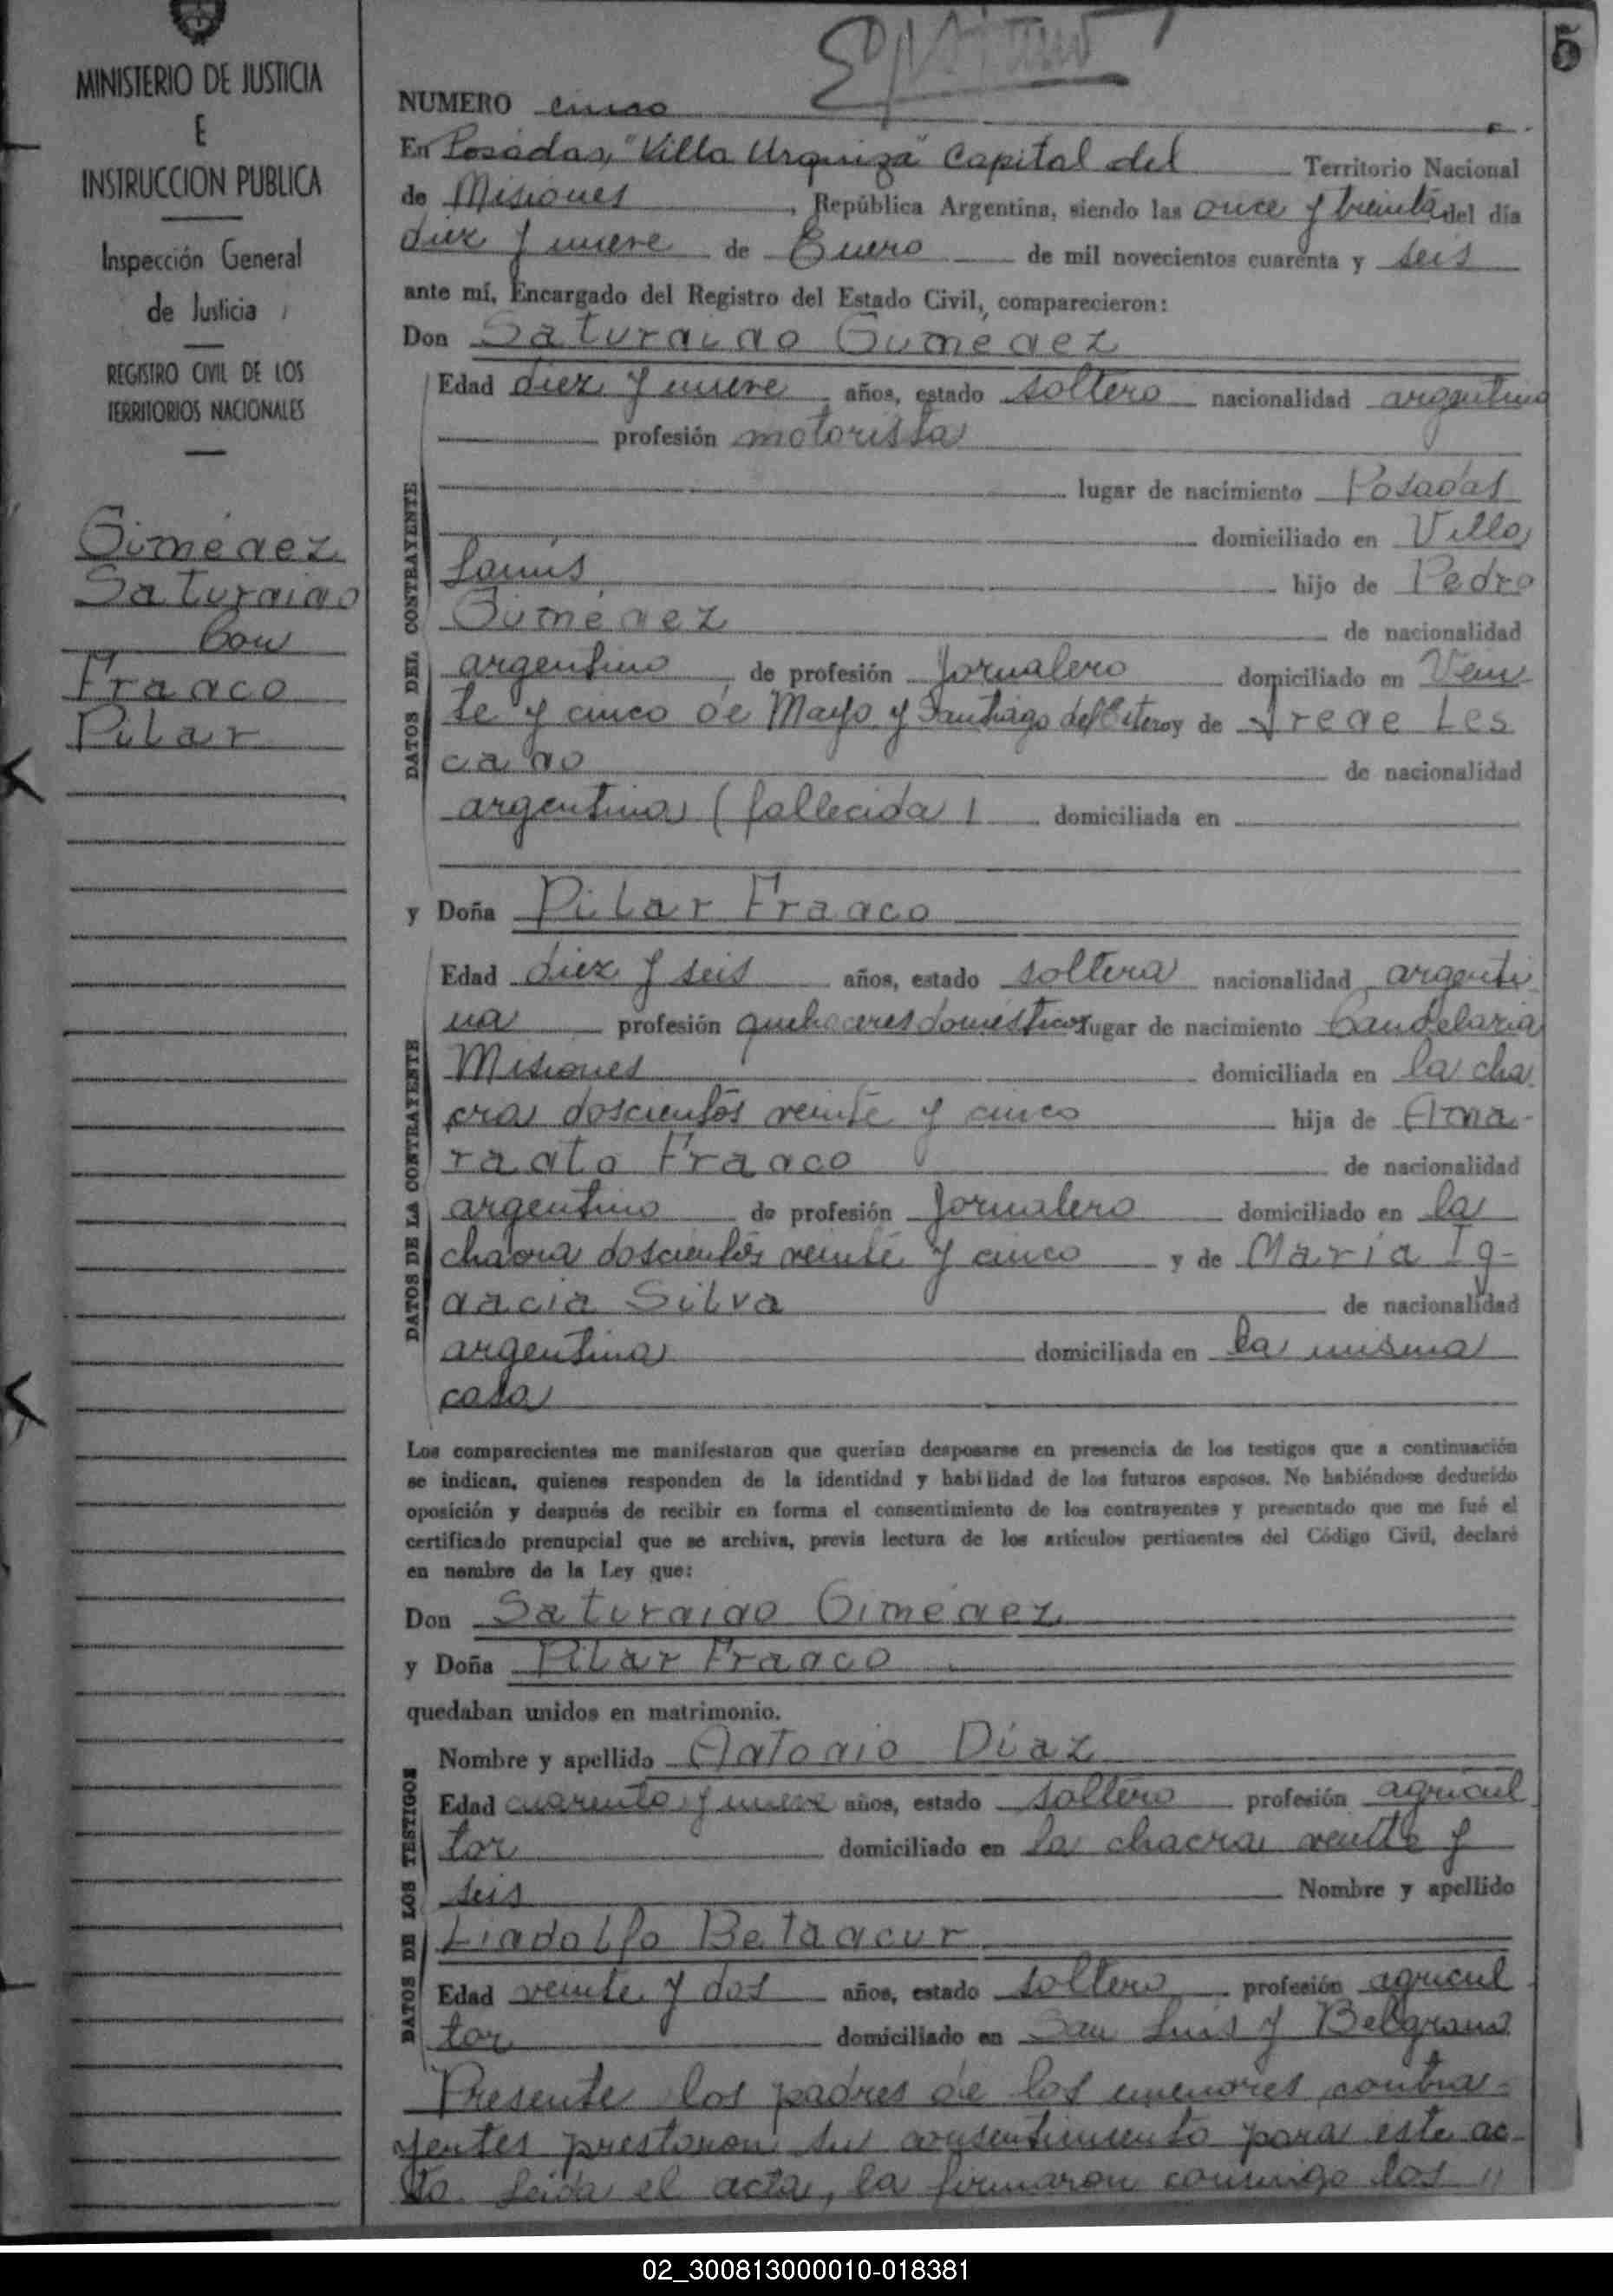 5
MINISTERIO DE JUSTICIA
E
INSTRUCCION PUBLICA
Inspección General
de Justicia
REGISTRO CIVIL DE LOS
TERRITORIOS NACIONALES
Giménez
Saturnino
Con
Franco
Pilar
NUMERO cinco
En Posadas, "Villa Urquiza" Capital del Territorio Nacional
de Misiones, República Argentina, siendo las once y treinta del día
diez y nueve de Enero de mil novecientos cuarenta y seis
ante mí, Encargado del Registro del Estado Civil, comparecieron:
Don Saturnino Giménez
DATOS DEL CONTRAYENTE
Edad diez y nueve años, estado soltero nacionalidad argentino
profesión motorista
lugar de nacimiento Posadas
domiciliado en Villa
Lanús hijo de Pedro
Giménez de nacionalidad
argentino de profesión Jornalero domiciliado en Vein
te y cinco de Mayo y Santiago del Estero y de Irene Les
cano de nacionalidad
argentina (fallecida) domiciliada en
y Doña Pilar Franco
DATOS DE LA CONTRAYENTE
Edad diez y seis años, estado soltera nacionalidad argenti
na profesión quehaceres domésticos lugar de nacimiento Candelaria
Misiones domiciliada en la cha
cra doscientos veinte y cinco hija de Ama-
ranto Franco de nacionalidad
argentino de profesión Jornalero domiciliado en la
chacra doscientos veinte y cinco y de María Ig-
nacia Silva de nacionalidad
argentina domiciliada en la misma
casa
Los comparecientes me manifestaron que querían desposarse en presencia de los testigos que a continuación
se indican, quienes responden de la identidad y habilidad de los futuros esposos. No habiéndose deducido
oposición y después de recibir en forma el consentimiento de los contrayentes y presentado que me fué el
certificado prenupcial que se archiva, previa lectura de los artículos pertinentes del Código Civil, declaré
en nombre de la Ley que:
Don Saturnino Giménez
y Doña Pilar Franco
quedaban unidos en matrimonio.
DATOS DE LOS TESTIGOS
Nombre y apellido Antonio Díaz
Edad cuarenta y nueve años, estado soltero profesión agricul
tor domiciliado en la chacra veinte y
seis Nombre y apellido
Lindolfo Betancur
Edad veinte y dos años, estado soltero profesión agricul
tor domiciliado en San Luis y Belgrano
Presente los padres de los menores contra-
yentes prestaron su consentimiento para este ac-
to. Leída el acta, la firmaron conmigo los "
02_300813000010-018381